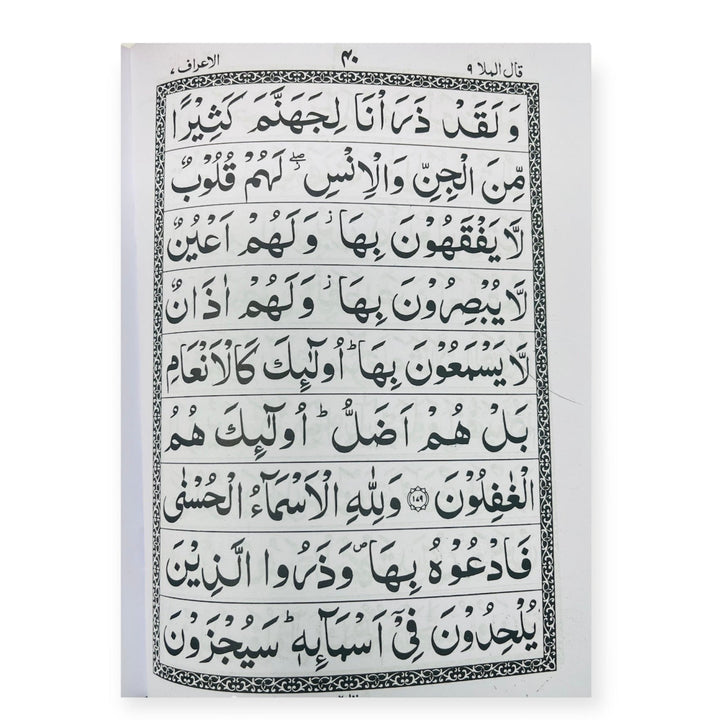 قال الملا ۹ ۴۰ الاعراف ۷
وَلَقَدْ ذَرَاْنَا لِجَهَنَّمَ كَثِيْرًا
مِّنَ الْجِنِّ وَالْاِنْسِ ۖ لَهُمْ قُلُوْبٌ
لَّا يَفْقَهُوْنَ بِهَا ؗ وَلَهُمْ اَعْيُنٌ
لَّا يُبْصِرُوْنَ بِهَا ؗ وَلَهُمْ اٰذَانٌ
لَّا يَسْمَعُوْنَ بِهَا ؕ اُولٰٓئِكَ كَالْاَنْعَامِ
بَلْ هُمْ اَضَلُّ ؕ اُولٰٓئِكَ هُمُ
الْغٰفِلُوْنَ ۝۱۷۹ وَلِلّٰهِ الْاَسْمَآءُ الْحُسْنٰى
فَادْعُوْهُ بِهَا ۪ وَذَرُوا الَّذِيْنَ
يُلْحِدُوْنَ فِيْۤ اَسْمَآئِهٖ ؕ سَيُجْزَوْنَ